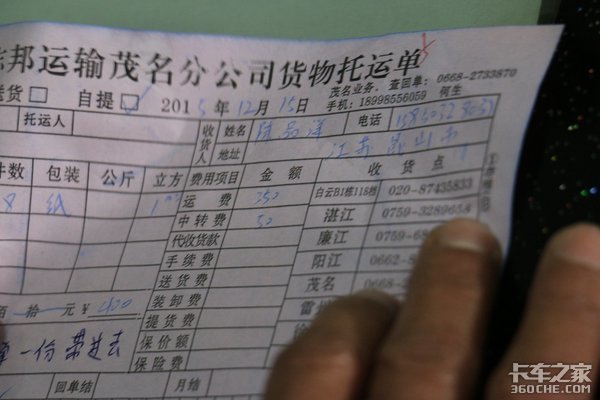 邦运输茂名分公司货物托运单
送货 自提 2015年12月15日
茂名业务、查回单: 0668-2733870
手机: 18998556059 何生
托运人 收货人 姓名 电话
地址 江苏昆山市
件数 包装 公斤 立方 费用项目 金额 收货点
8 纸 运费 350 白云B1栋115档 020-87435833
中转费 50 湛江 0759-3289658
代收货款 廉江 0759-6
手续费 阳江 0662-8
送货费 茂名 0668-2
装卸费 雷州
提货费
保价额
保险费
佰 拾 元 ¥ 400
一份
回单结 月结
卡车之家
360CHE.COM